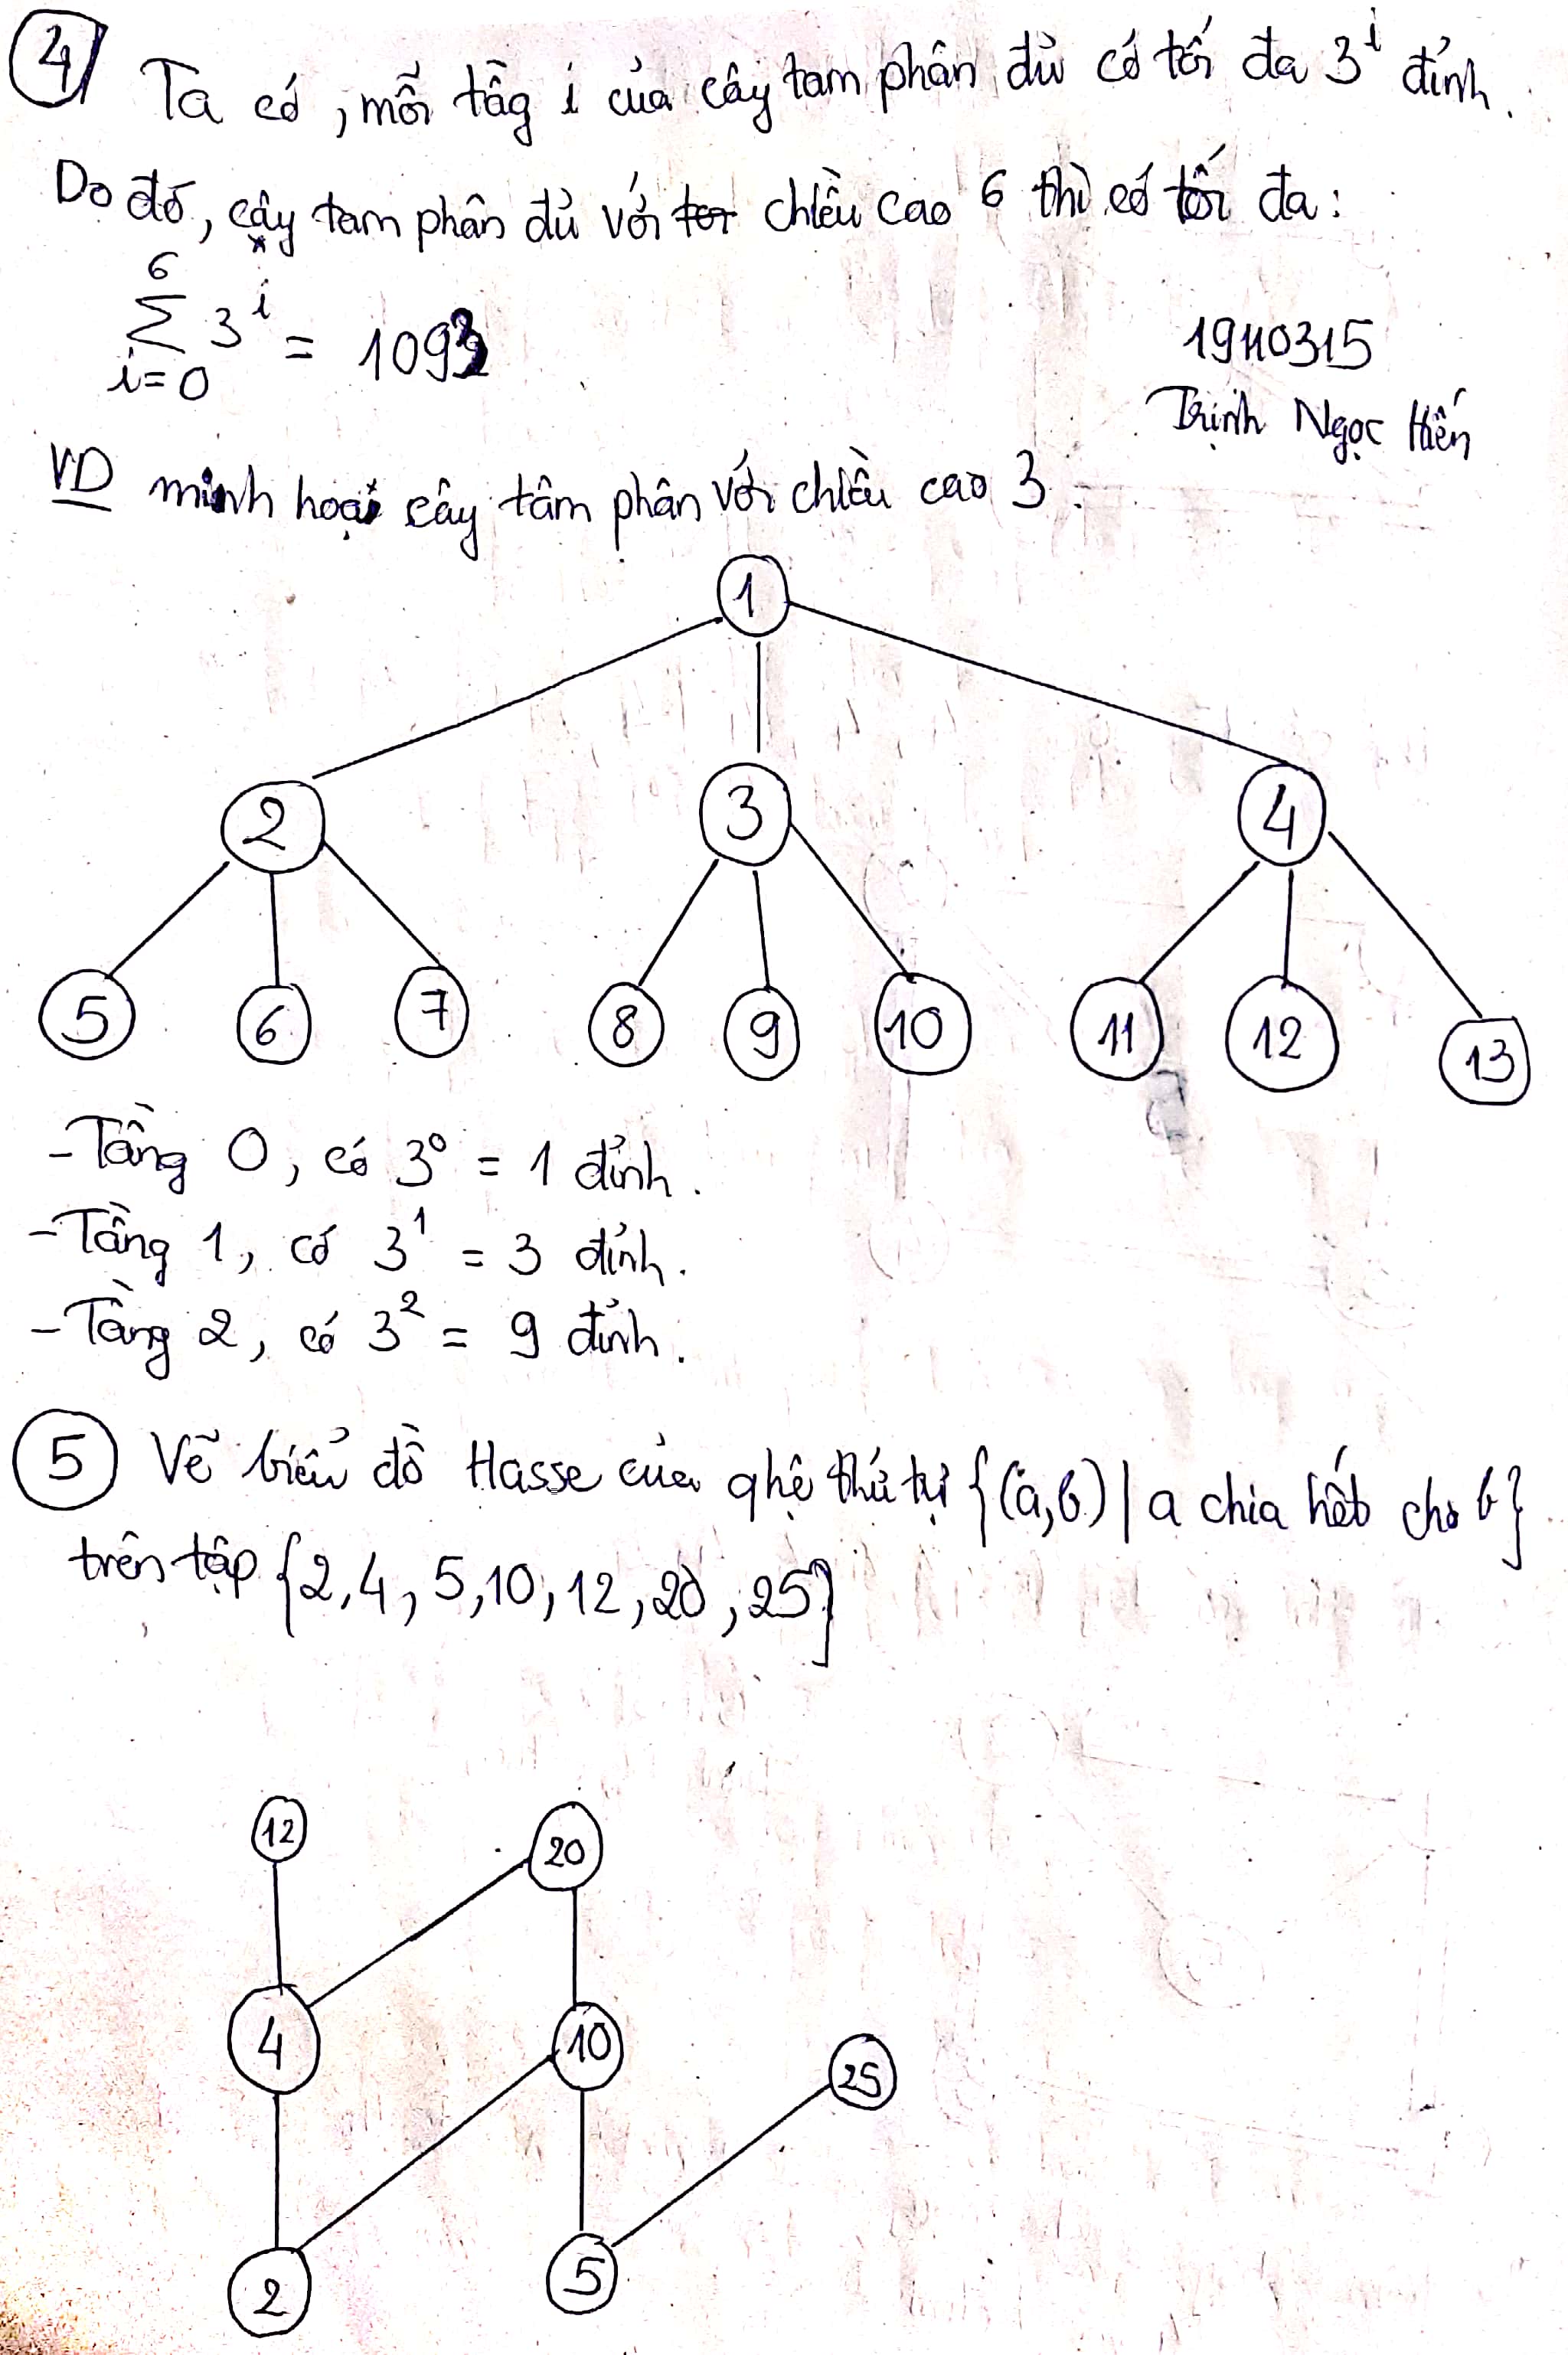 4
Ta có, mỗi tầg i của cây tam phân đủ có tối đa 3^i đỉnh.
Do đó, cây tam phân đủ với chiều cao 6 thì có tối đa:
6
∑ 3^i = 1093
i=0
19110315
Trịnh Ngọc Hiến
VD minh hoạ cây tâm phân với chiều cao 3:
1
2 3 4
5 6 7 8 9 10 11 12 13
- Tầng 0, có 3^0 = 1 đỉnh.
- Tầng 1, có 3^1 = 3 đỉnh.
- Tầng 2, có 3^2 = 9 đỉnh.
5 Vẽ biểu đồ Hasse của qhệ thứ tự {(a,b) | a chia hết cho b}
trên tập {2,4,5,10,12,20,25}
12 20
4 10 25
2 5